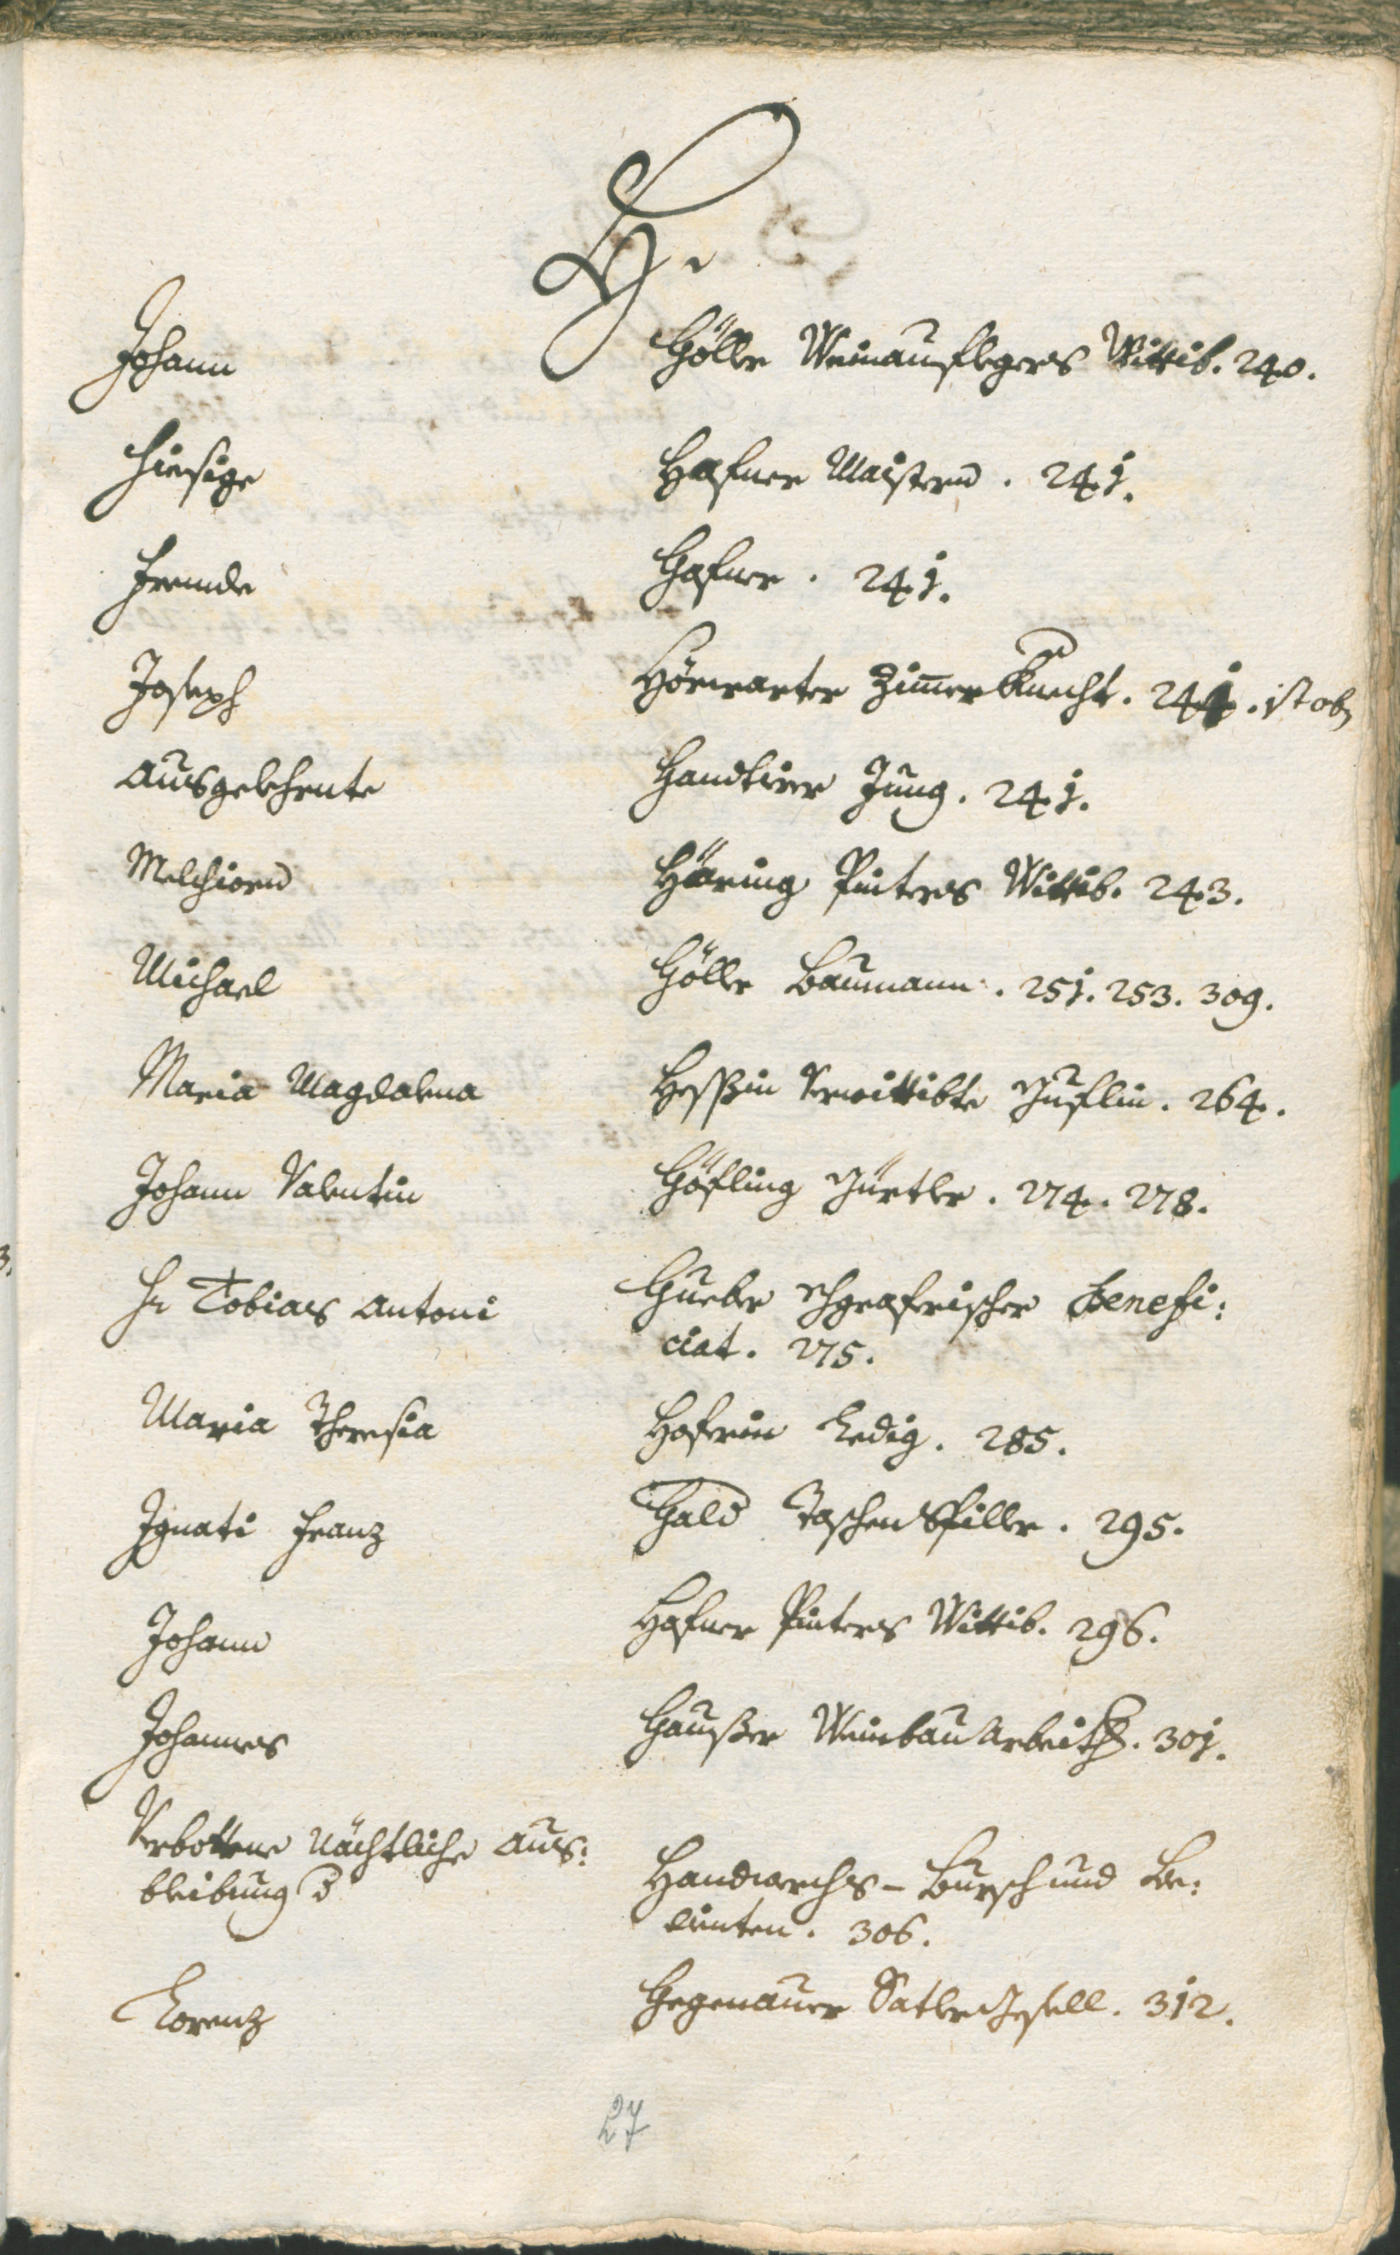 H.
Johann Höller Weinauslegers Wittib. 240.
hiesige Hafner Maistern. 241.
fremde Hafner. 241.
Joseph Hörwarter Zimerknecht. 241. ist ob
Ausgelehrnte Handlirer Jung. 241.
Melchiorn Häring Pinters Wittib. 243.
Michael Höller Baumann. 251. 253. 309.
Maria Magdalena Heßin verwittibte 264.
Johann Valentin Höfling Gürtler. 274. 278.
Hr Tobias Antoni Hueber Benefi:
ciat. 275.
Maria Theresia Hoferin Ledig. 285.
Ignati Franz Hald Taschenspiller. 295.
Johann Hafner Pinters Wittib. 296.
Johannes Haußer Weinbau Arbeith. 301.
Verbottene Nächtliche Aus:
bleibung d Handwerchs-Bursch und Be:
dienten. 306.
Lorenz Hegenauer Satler Gesell. 312.
27